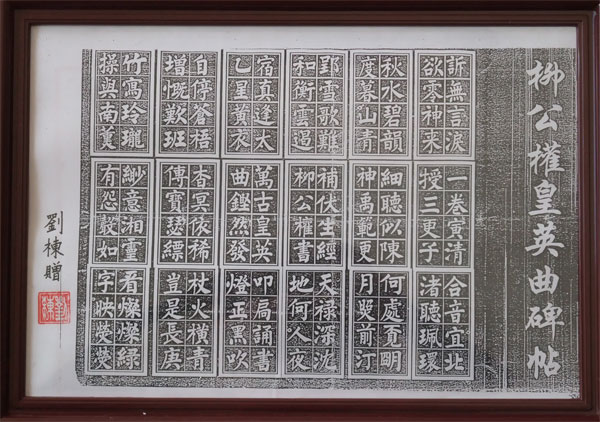 柳公權皇英曲碑帖
訴無言淚
欲零神来
秋水碧韻
度暮山青
郢雪歌難
和衡雲遏
宿真逹太
乙呈黃衣
自停蒼梧
增慨歎班
竹寫玲瓏
操與南薰
一卷黃清
授三更子
細聽似陳
神禹範更
補伏生經
柳公權書
萬古皇英
曲鏗然發
杳冥依稀
傳寶瑟縹
緲意湘靈
有怨如
合音宜北
渚聽珮環
何處明
月與前汀
天禄深沈
地何人夜
叩扃誦書
燈正黑吹
杖火橫青
豈是長庚
看燦燦綠
字映熒熒
劉棟贈
劉棟